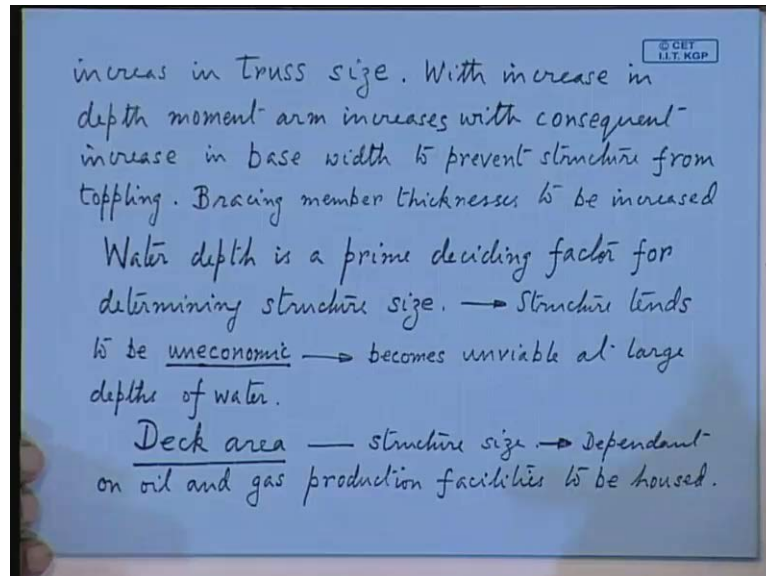 © CET
I.I.T. KGP
increas in truss size. With increase in
depth moment arm increases with consequent
increase in base width to prevent structure from
toppling. Bracing member thicknesses to be increased
Water depth is a prime deciding factor for
determining structure size. → Structure tends
to be uneconomic → becomes unviable at large
depths of water.
Deck area — structure size → Dependant
on oil and gas production facilities to be housed.